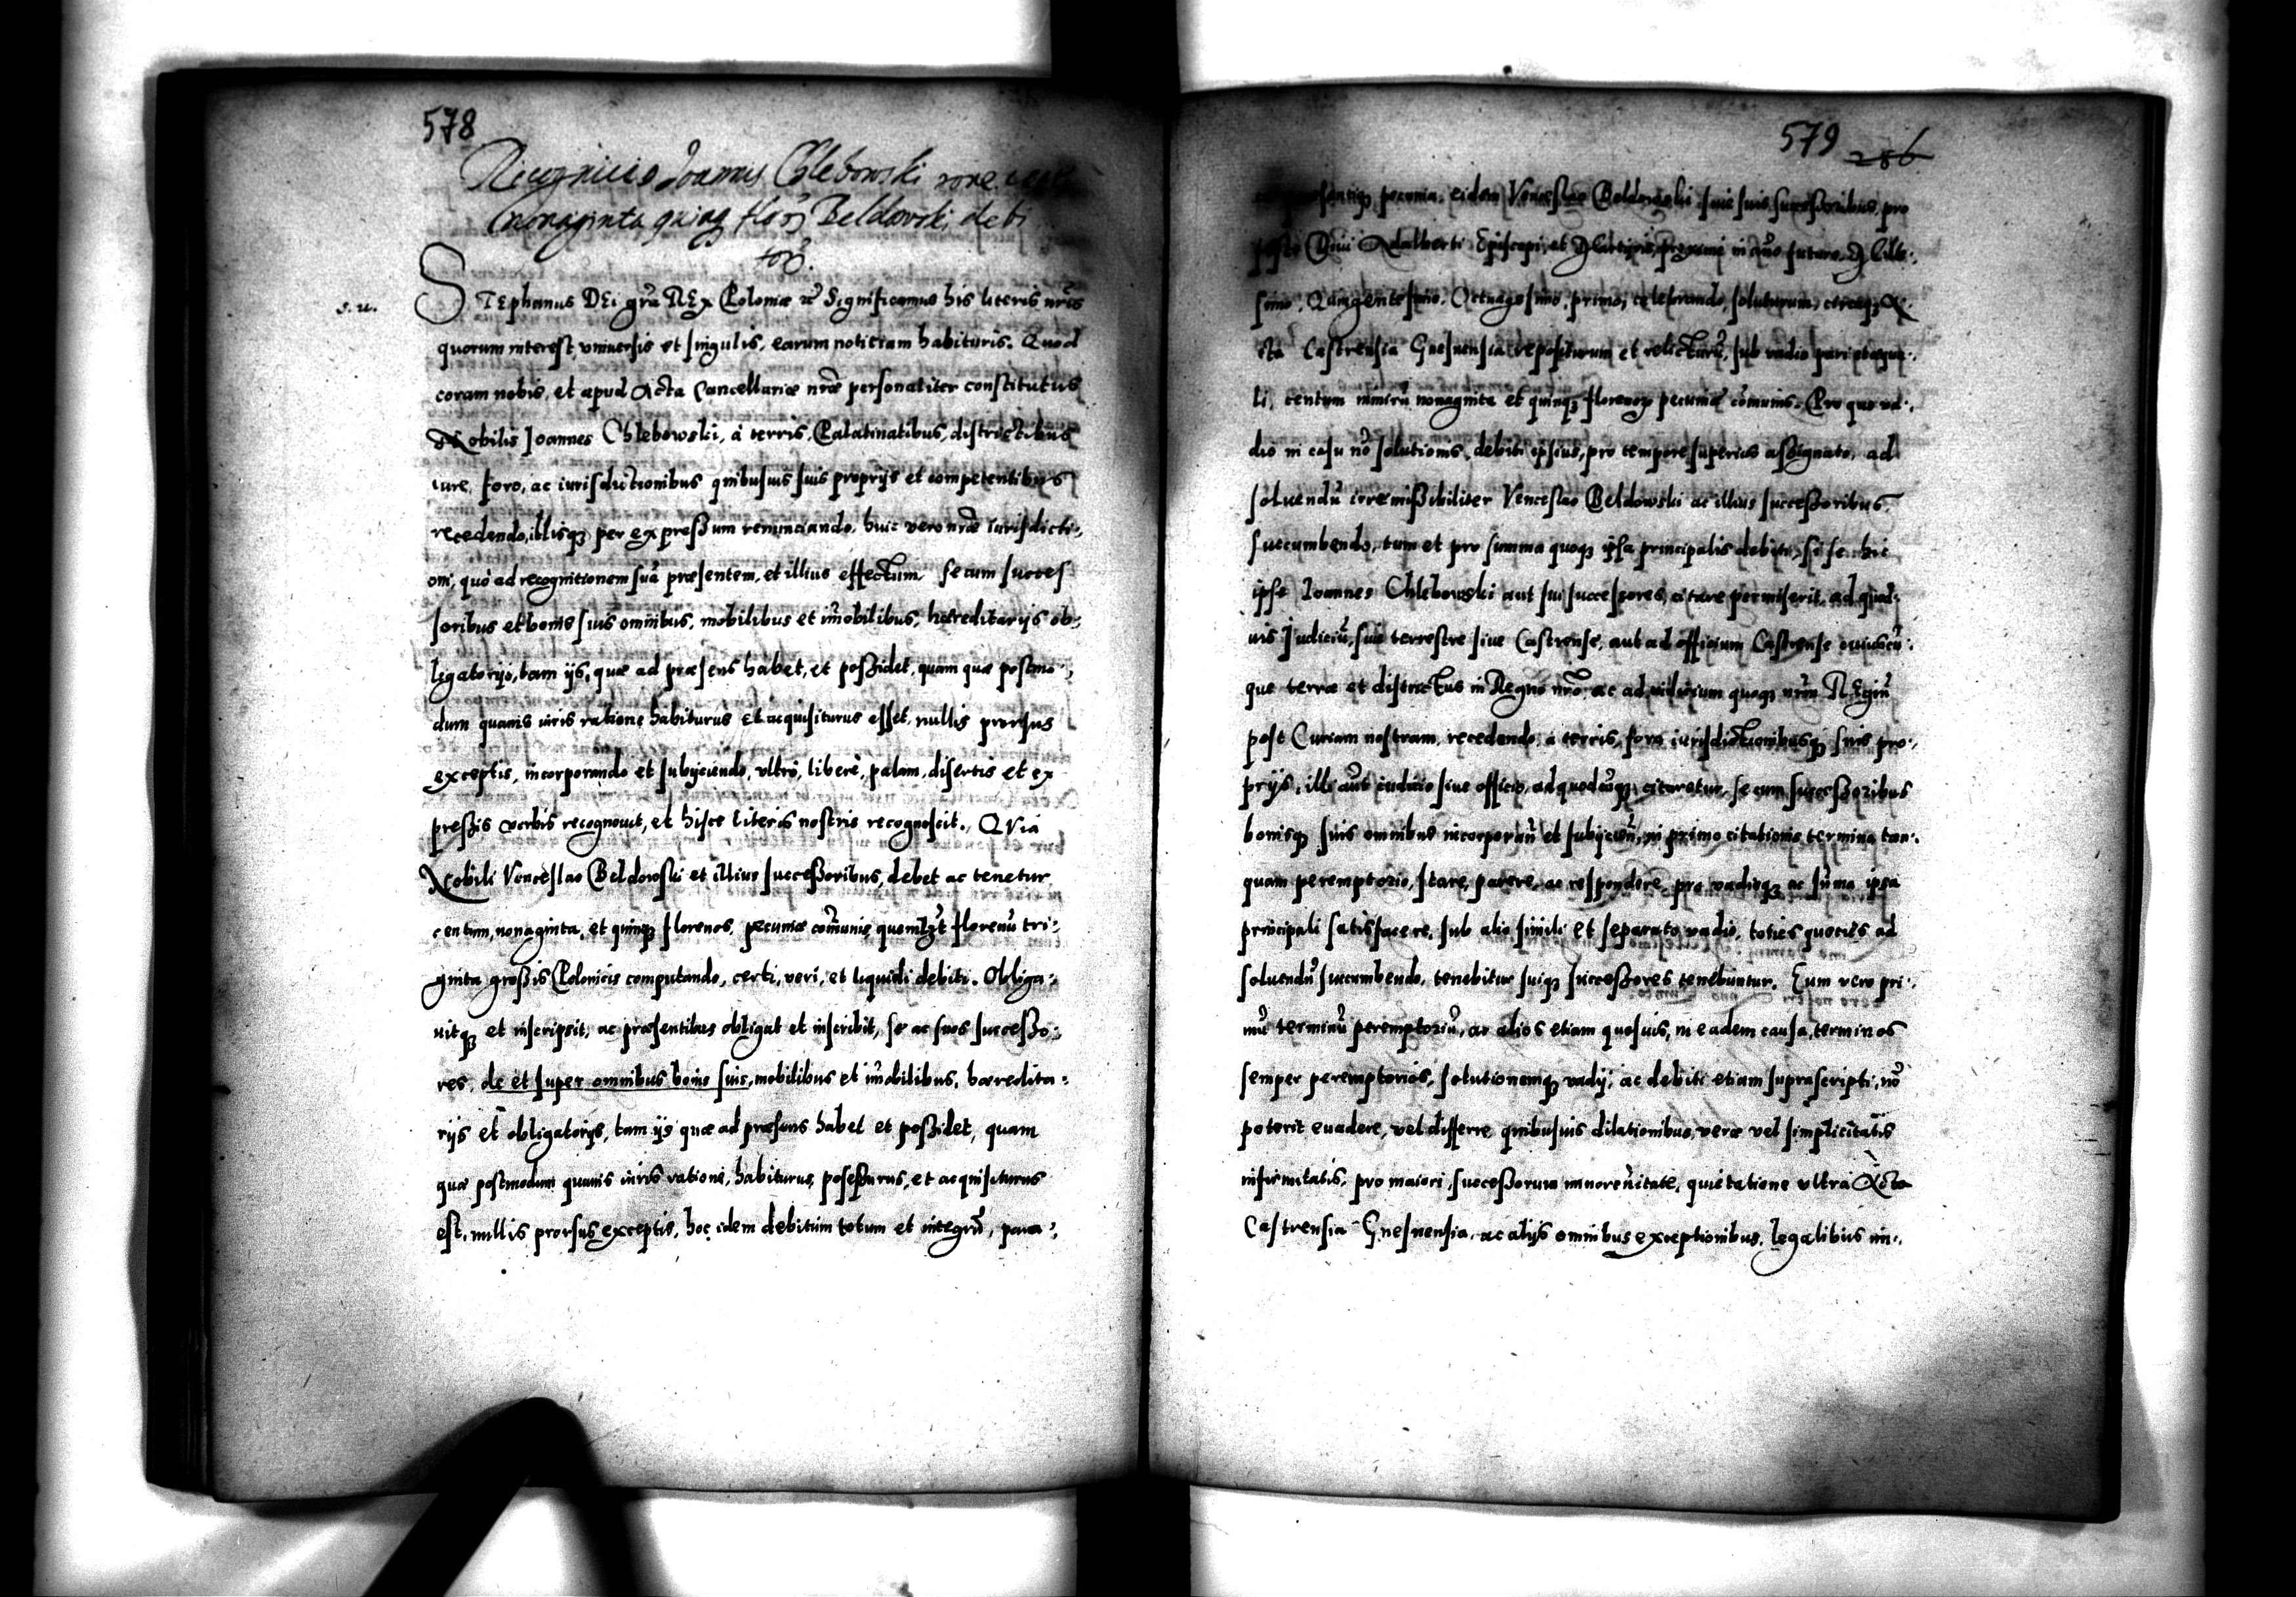 578
Recognicio Joannis Chlebowski rõne cent
nonaginta quinq florʒ Beldowski debi
torʒ.
s. u.
STEphanus DEi gr̃a REx Poloniæ &c̃ Significamus his literis nr̃is
quorum interest, vniuersis et singulis, earum notitiam habituris. Quod
coram nobis, et apud Acta Cancellariæ nr̃æ personaliter constitutus
Nobilis Joannes Chlebowski, à terris, Palatinatibus, districtibus
iure, foro, ac iurisdictionibus quibusuis suis proprijs et competentibus
recedendo, illisqʒ per expreßum renunciando. huic vero nr̃æ iurisdicti,
oni, quò ad recognitionem suã præsentem, et illius effectum, se cum succes
soribus et bonis suis omnibus, mobilibus et im̃obilibus, hæreditarijs ob,
ligatorijs, tam ijs, quæ ad præsens habet, et poßidet, quam quæ postmo,
dum quauis iuris ratione habiturus et acquisiturus esset, nullis prorsus
exceptis, incorporando et subijciendo, vltrò, liberè, palam, disertis et ex
preßis verbis recognouit, et hisce literis nostris recognoscit. QVia
Nobili Venceslao Beldowski et illius succeßoribus, debet ac tenetur
centum, nonaginta, et quinqʒ florenos, pecuniæ com̃unis quemlʒt florenũ tri,
ginta großis Polonicis computando, certi, veri, et liquidi debiti. Obliga,
uitqʒ et inscripsit, ac præsentibus obligat et inscribit, se ac suos succeßo,
res, de et super omnibus bonis suis, mobilibus et im̃obilibus, hæredita,
rijs et obligatorijs, tam ijs quæ ad præsens habet et poßidet, quam
quæ postmodum quauis iuris ratione, habiturus, poseßurus, et acquisiturus
est, nullis prorsus exceptis, hoc idem debitum totum et integrũ, para,
579 286
pecunia, eidem Venceslao Beldowski suis suis succeßoribus, pro
festo Diui Adalberti Episcopi et Martyris, proximè in quo futuro, Milles,
simo, Quingentesimo, Octuagesimo, primo, celebrando, soluturum, circaqʒ A,
cta Castrensia Gnesnensia repositurum et relicturũ, sub vadio pari etæqua,
li, centum nimirũ nonaginta et quinqʒ florenorʒ pecuniæ com̃unis. Pro quo va,
dio in casu nõ solutionis, debiti ipsius, pro tempore superius aßignato, ad
soluendũ irremißibiliter Venceslao Beldowski ac illius succeßoribus
succumbendo, tum et pro summa quoqʒ ipsa principalis debiti, si se hic
ipse Joannes Chlebowski aut sui successores, citare permiserit, ad quod,
uis Judiciũ, siue terrestre siue Castrense, aut ad officium Castrense cuiuscũ,
que terræ et districtus in Regno nr̃o, ac ad iudicium quoqʒ nr̃m REgiũ
post Curiam nostram, recedendo, a terris, foro iurisdictionibusqʒ suis pro,
prijs, illi aũt iudicio siue officio, ad quodcũqʒ citaretur, se cum succeßoribus
bonisqʒ suis omnibus incorporañ et subijcieñ, in primo citationis termino tan,
quam peremptorio, stare, parere, ac respondere, pro vadioqʒ ac sũma ipsa
principali satisfacere, sub alio simili et separato vadio, toties quoties ad
soluendũ succumbendo, tenebitur suiqʒ succeßores tenebuntur. Eum vero pri,
mũ terminũ peremptoriũ, ac alios etiam quosuis, in eadem causa, terminos
semper peremptorios, solutionemqʒ vadij, ac debiti etiam suprascripti, nõ
poterit euadere, vel differre, quibusuis dilationibus, veræ vel simplicitatis
infirmitatis, pro maiori, succeßorum minorenitate, quietatione vltra Acta
Castrensia Gnesnensia, ac alijs omnibus exceptionibus, legalibus im,